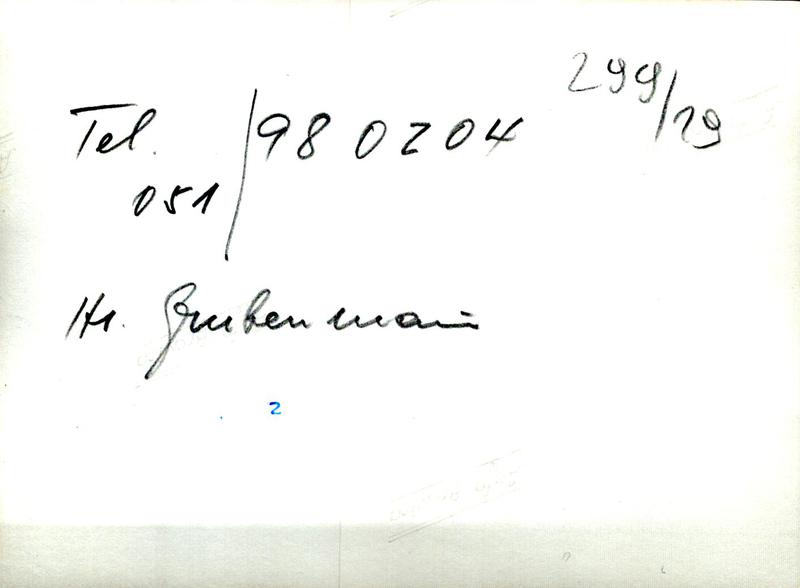 299/29
Tel. 051/980204
Hr. Grubenmann
2